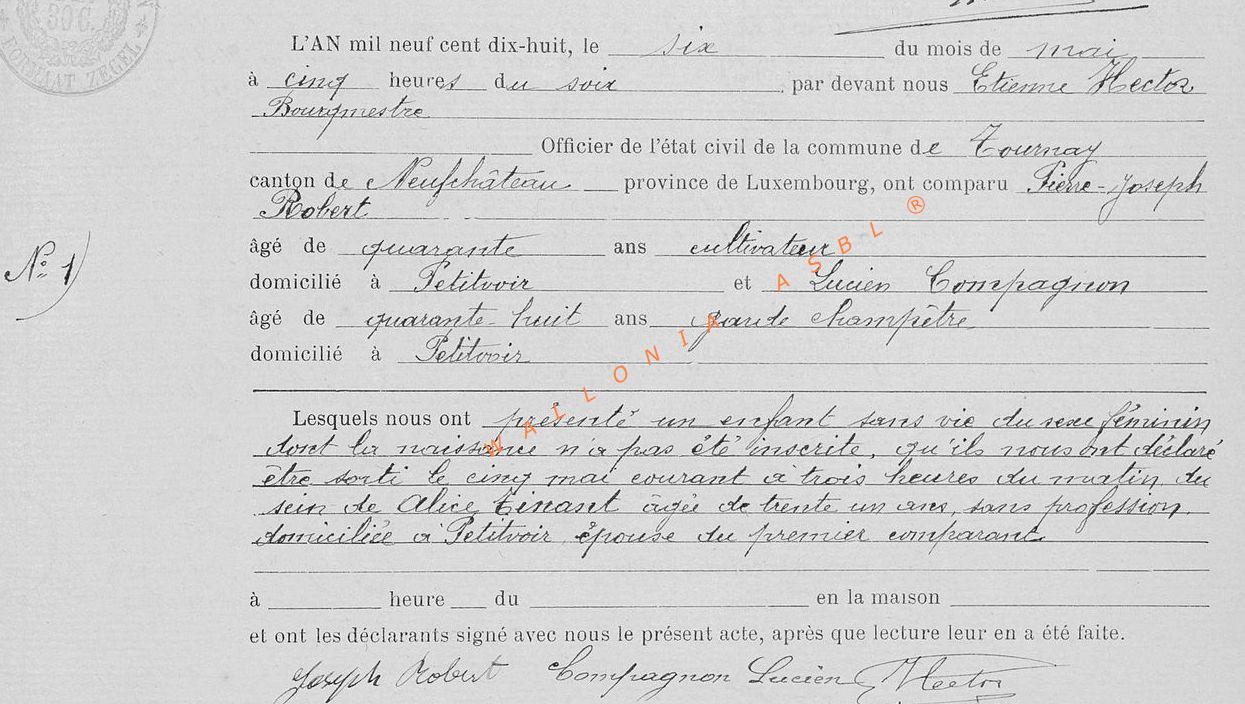 30 C.
FORMAAT ZEGEL
L'AN mil neuf cent dix-huit, le six du mois de mai
à cinq heures du soir par devant nous Etienne Hector
Bourgmestre
Officier de l'état civil de la commune de Tournay
canton de Neufchâteau province de Luxembourg, ont comparu Pierre-Joseph
Robert
âgé de quarante ans cultivateur
N° 1)
domicilié à Petitvoir et Lucien Compagnon
âgé de quarante-huit ans garde champêtre
domicilié à Petitvoir
WALLONIA ASBL ®
Lesquels nous ont présenté un enfant sans vie du sexe féminin
dont la naissance n'a pas été inscrite, qu'ils nous ont déclaré
être sorti le cinq mai courant à trois heures du matin du
sein de Alice Tinant âgée de trente un ans, sans profession,
domiciliée à Petitvoir épouse du premier comparant
à heure du en la maison
et ont les déclarants signé avec nous le présent acte, après que lecture leur en a été faite.
Joseph Robert Compagnon Lucien E Hector